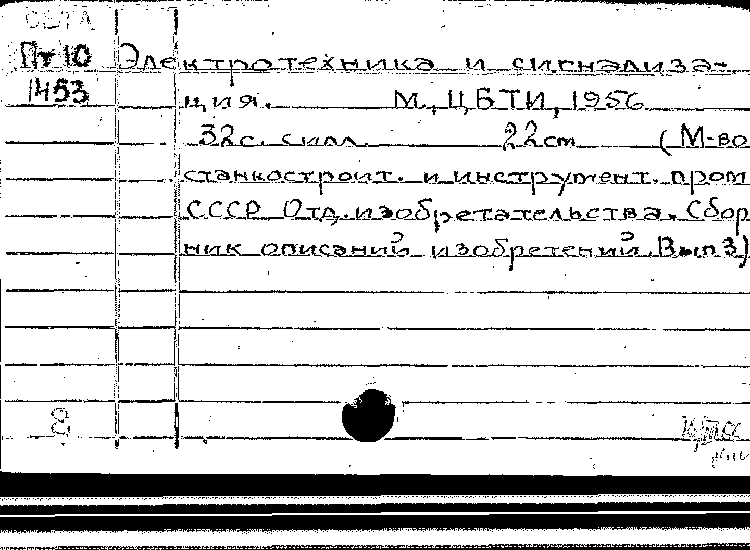 Пт 10 Электротехника и сигнализа-
1453 ция. М., ЦБТИ, 1956
32с. с илл. 22cm (М-во
станкостроит. и инструмент. пром
СССР Отд. изобретательства. Сбор
ник описаний изобретений. Вып 3)
8